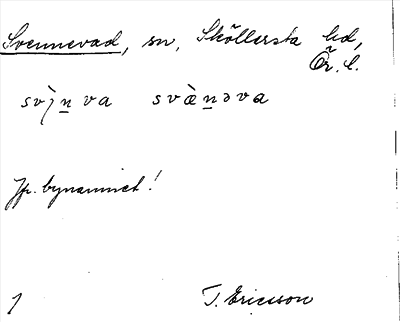 Svennevad, sn, Sköllersta hd,
Ör. l.
svæ̀n̲va svæ̀n̲əva
Jfr. bynamnet!
1 T. Ericsson